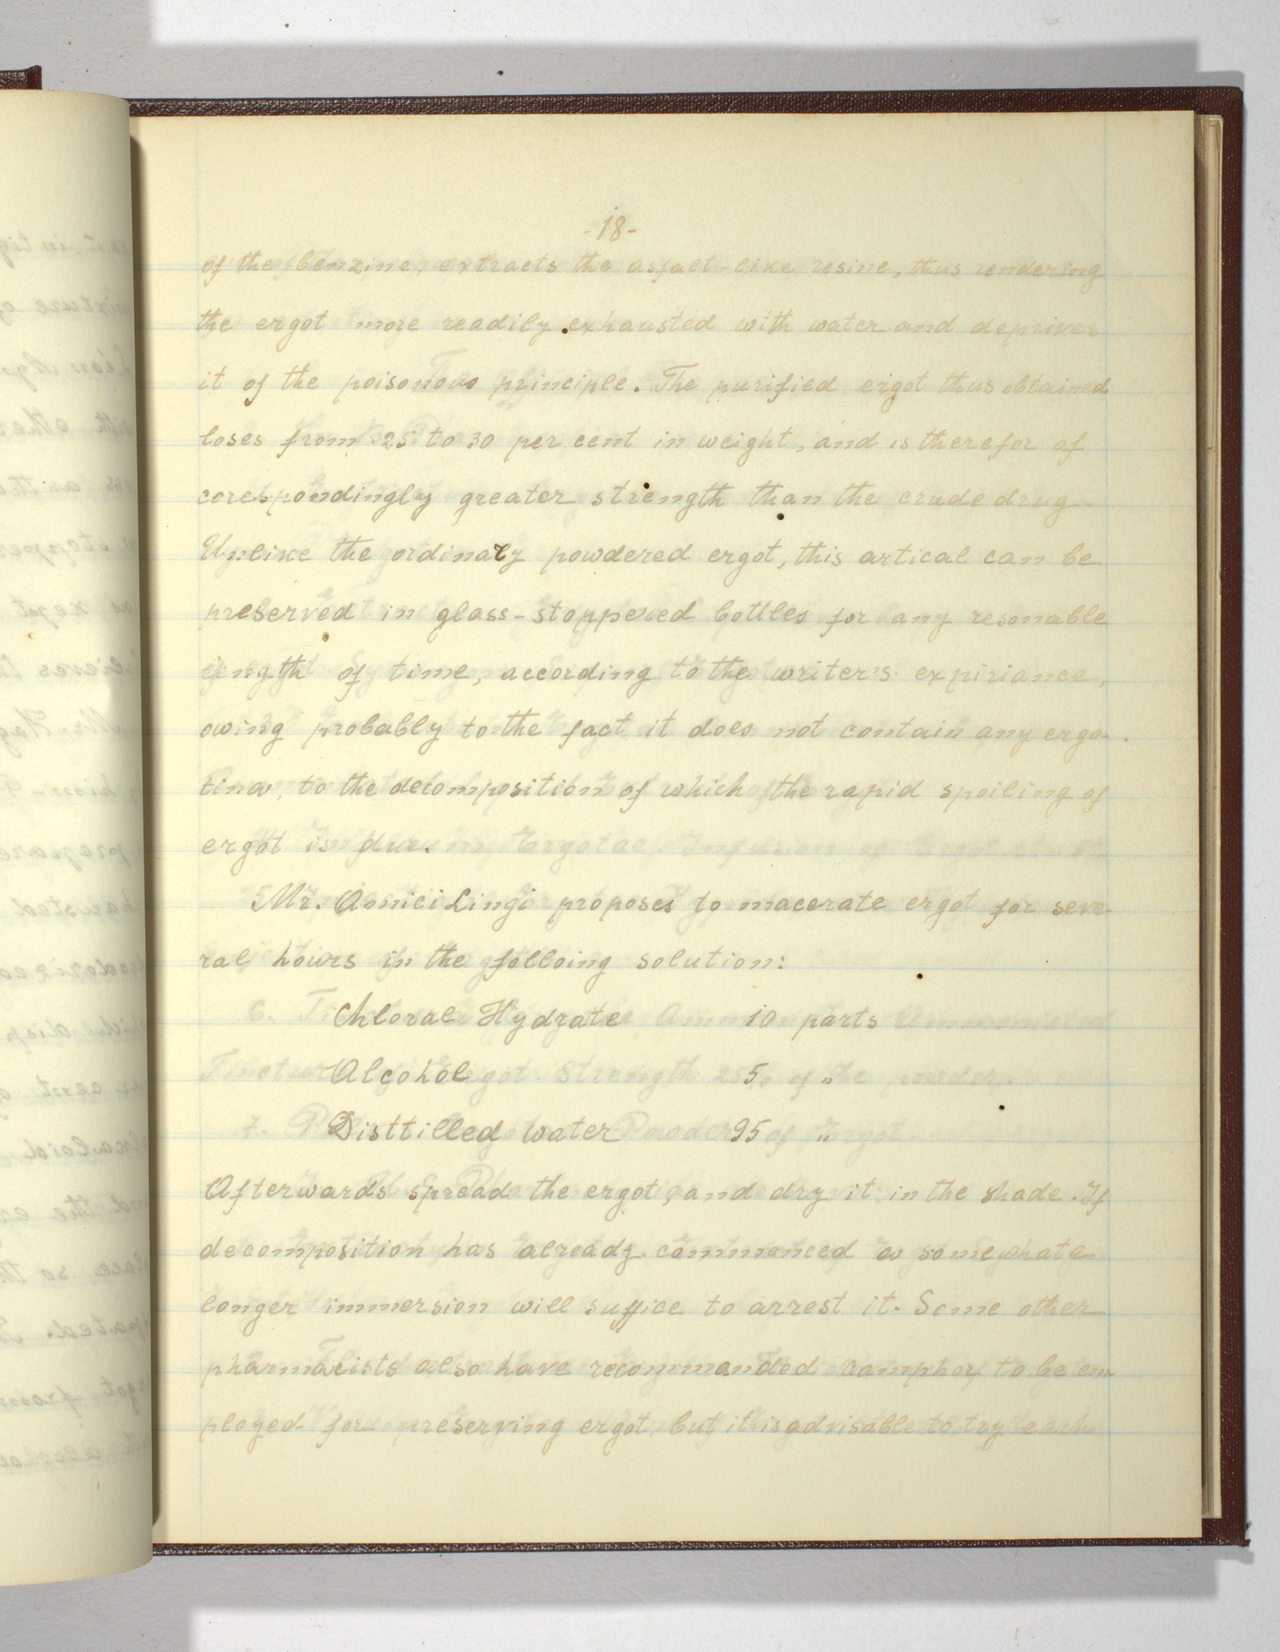 -18-
of the benzine, extracts the asfalt-like resine, thus rendering
the ergot more readily exhausted with water and deprives
it of the poisonous principle. The purified ergot thus obtained
loses from 25 to 30 per cent in weight, and is therefor of
corespondingly greater strength than the crude drug.
Unlike the ordinary powdered ergot, this artical can be
preserved in glass-stoppered bottles for any resonable
length of time, according to the writer's expiriance,
owing probably to the fact it does not contain any ergo-
tina, to the decomposition of which the rapid spoiling of
ergot is due.
Mr. Amici Lingi proposes to macerate ergot for seve
ral hours in the folloing solution:
Chloral Hydrate 10 parts
Alcohol 5 "
Disttilled water 95 "
Afterwards spread the ergot, and dry it in the shade. If
decomposition has already commenced a somewhate
longer immersion will suffice to arrest it. Some other
pharmacists also have recommanded camphor to be em
ployed for preserving ergot, but it is advisable to try each